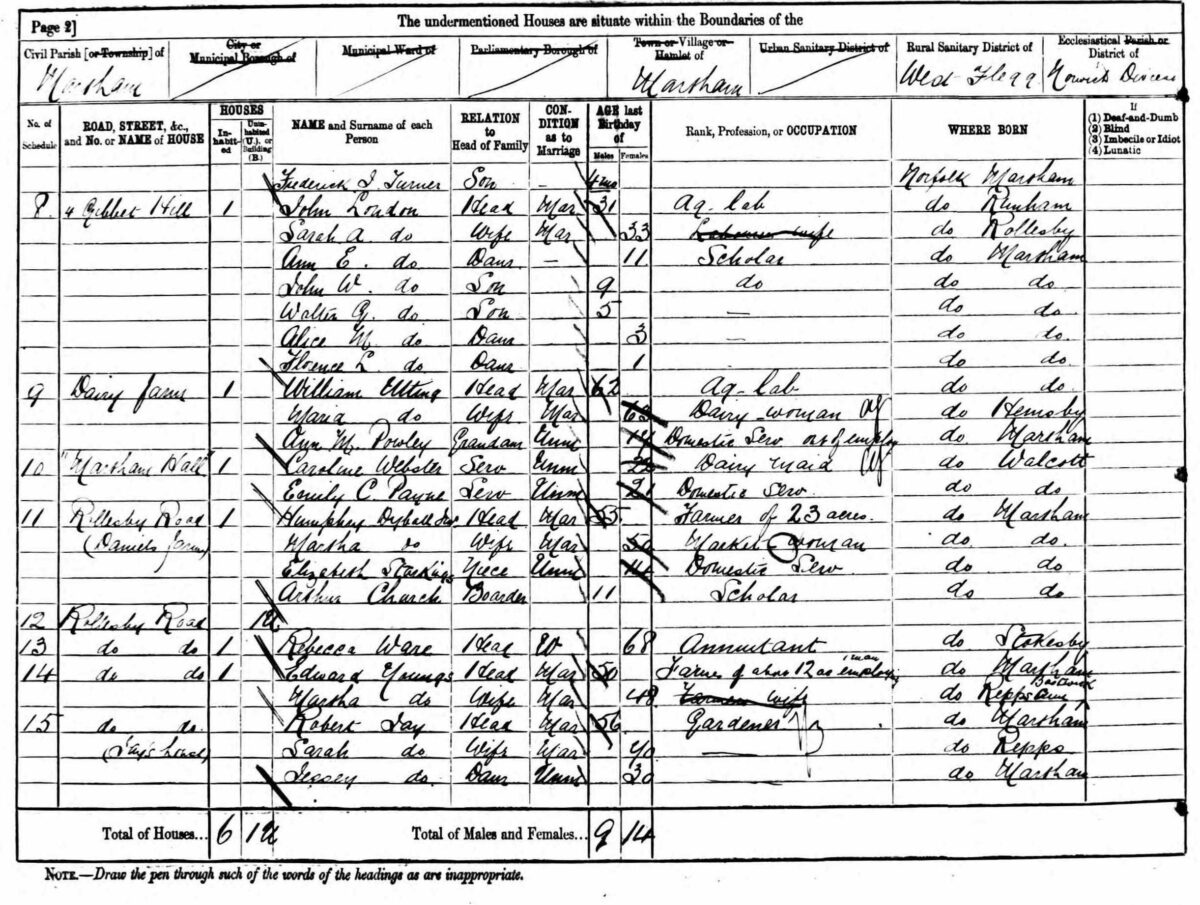 Page 2]
The undermentioned Houses are situate within the Boundaries of the
Civil Parish [or Township] of
City or Municipal Borough of
Municipal Ward of
Parliamentary Borough of
Town or Village or Hamlet of
Urban Sanitary District of
Rural Sanitary District of
Ecclesiastical Parish or District of
Marsham Marsham West Flegg Norwich Diocese
No. of Schedule
ROAD, STREET, &c., and No. or NAME of HOUSE
HOUSES
In-habit-ed
Unin-habited (U.), or Building (B.)
NAME and Surname of each Person
RELATION to Head of Family
CON-DITION as to Marriage
AGE last Birthday of
Males Females
Rank, Profession, or OCCUPATION
WHERE BORN
If
(1) Deaf-and-Dumb
(2) Blind
(3) Imbecile or Idiot
(4) Lunatic
Frederick J. Turner Son — 4 mo Norfolk Marsham
8 4 Gibbet Hill 1 John London Head Mar 31 Ag. lab do Runham
Sarah A. do Wife Mar 33 Labourers wife do Rollesby
Ann E. do Daur — 11 Scholar do Marsham
John W. do Son 9 do do do
Walter G. do Son 5 — do do.
Alice M. do Daur 3 — do do.
Florence L. do Daur 1 do do.
9 Dairy Farm 1 William Utting Head Mar 62 Ag. lab do do
Maria do Wife Mar 63 Dairy-woman do Hemsby
Ann M. Powley Grandaur Unm 14 Domestic Serv out of employ do. Marsham
10 "Marsham Hall" 1 Caroline Webster Serv Unm 22 Dairy maid do Walcott
Emily C. Payne Serv Unm 21 Domestic Serv. do do
11 Rollesby Road 1 Humphey Dyball Head Mar 55 Farmer of 23 acres. do Marsham
(Daniels Farm) Martha do Wife Mar 50 Market woman do. do.
Elizabeth Starkings Niece Unm 14 Domestic Serv. do do
Arthur Church Boarder 11 Scholar do do
12 Rollesby Road 1U
13 do do 1 Rebecca Ware Head W 68 Annuitant do Stokesby
14 do do 1 Edward Youngs Head Mar 50 Farmer of abou 12 as employing 1 man do Marsham
Martha do Wife Mar 48 Farmers wife do Repps Bastwick
15 do do. Robert Jay Head Mar 56 Gardener do Marsham
(Jay's house) Sarah do Wife Mar 40 — do Repps
Jessey do. Daur Unm 30 do Marsham
Total of Houses... 6 1U Total of Males and Females... 9 14
NOTE.—Draw the pen through such of the words of the headings as are inappropriate.